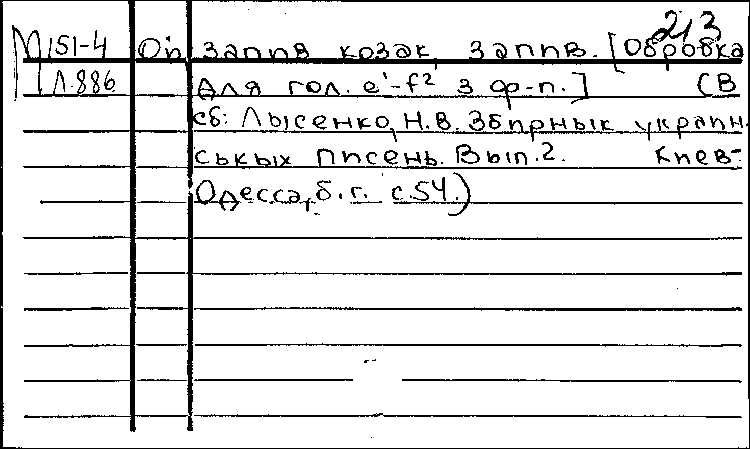 213
М 151-4 Ой, запив козак, запив. [Обробка
Л.886 для гол. e'-f² з ф-п.] (В
сб: Лысенко, Н.В. Збірнык украін-
ськых писень. Вып.2. Киев-
Одесса, б.г. с.54.)